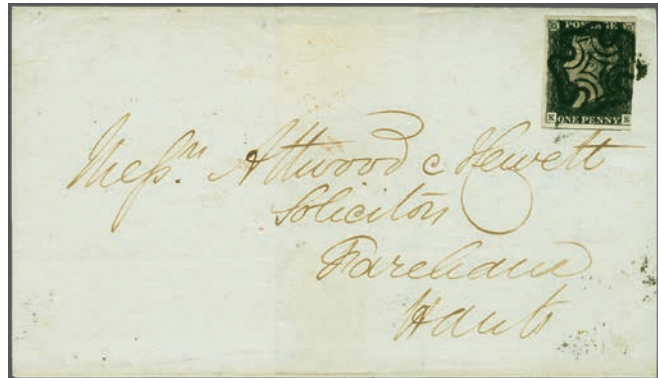 POSTAGE
K E
ONE PENNY
Messrs. Attwood & Hewett
Solicitors
Fareham
Hants